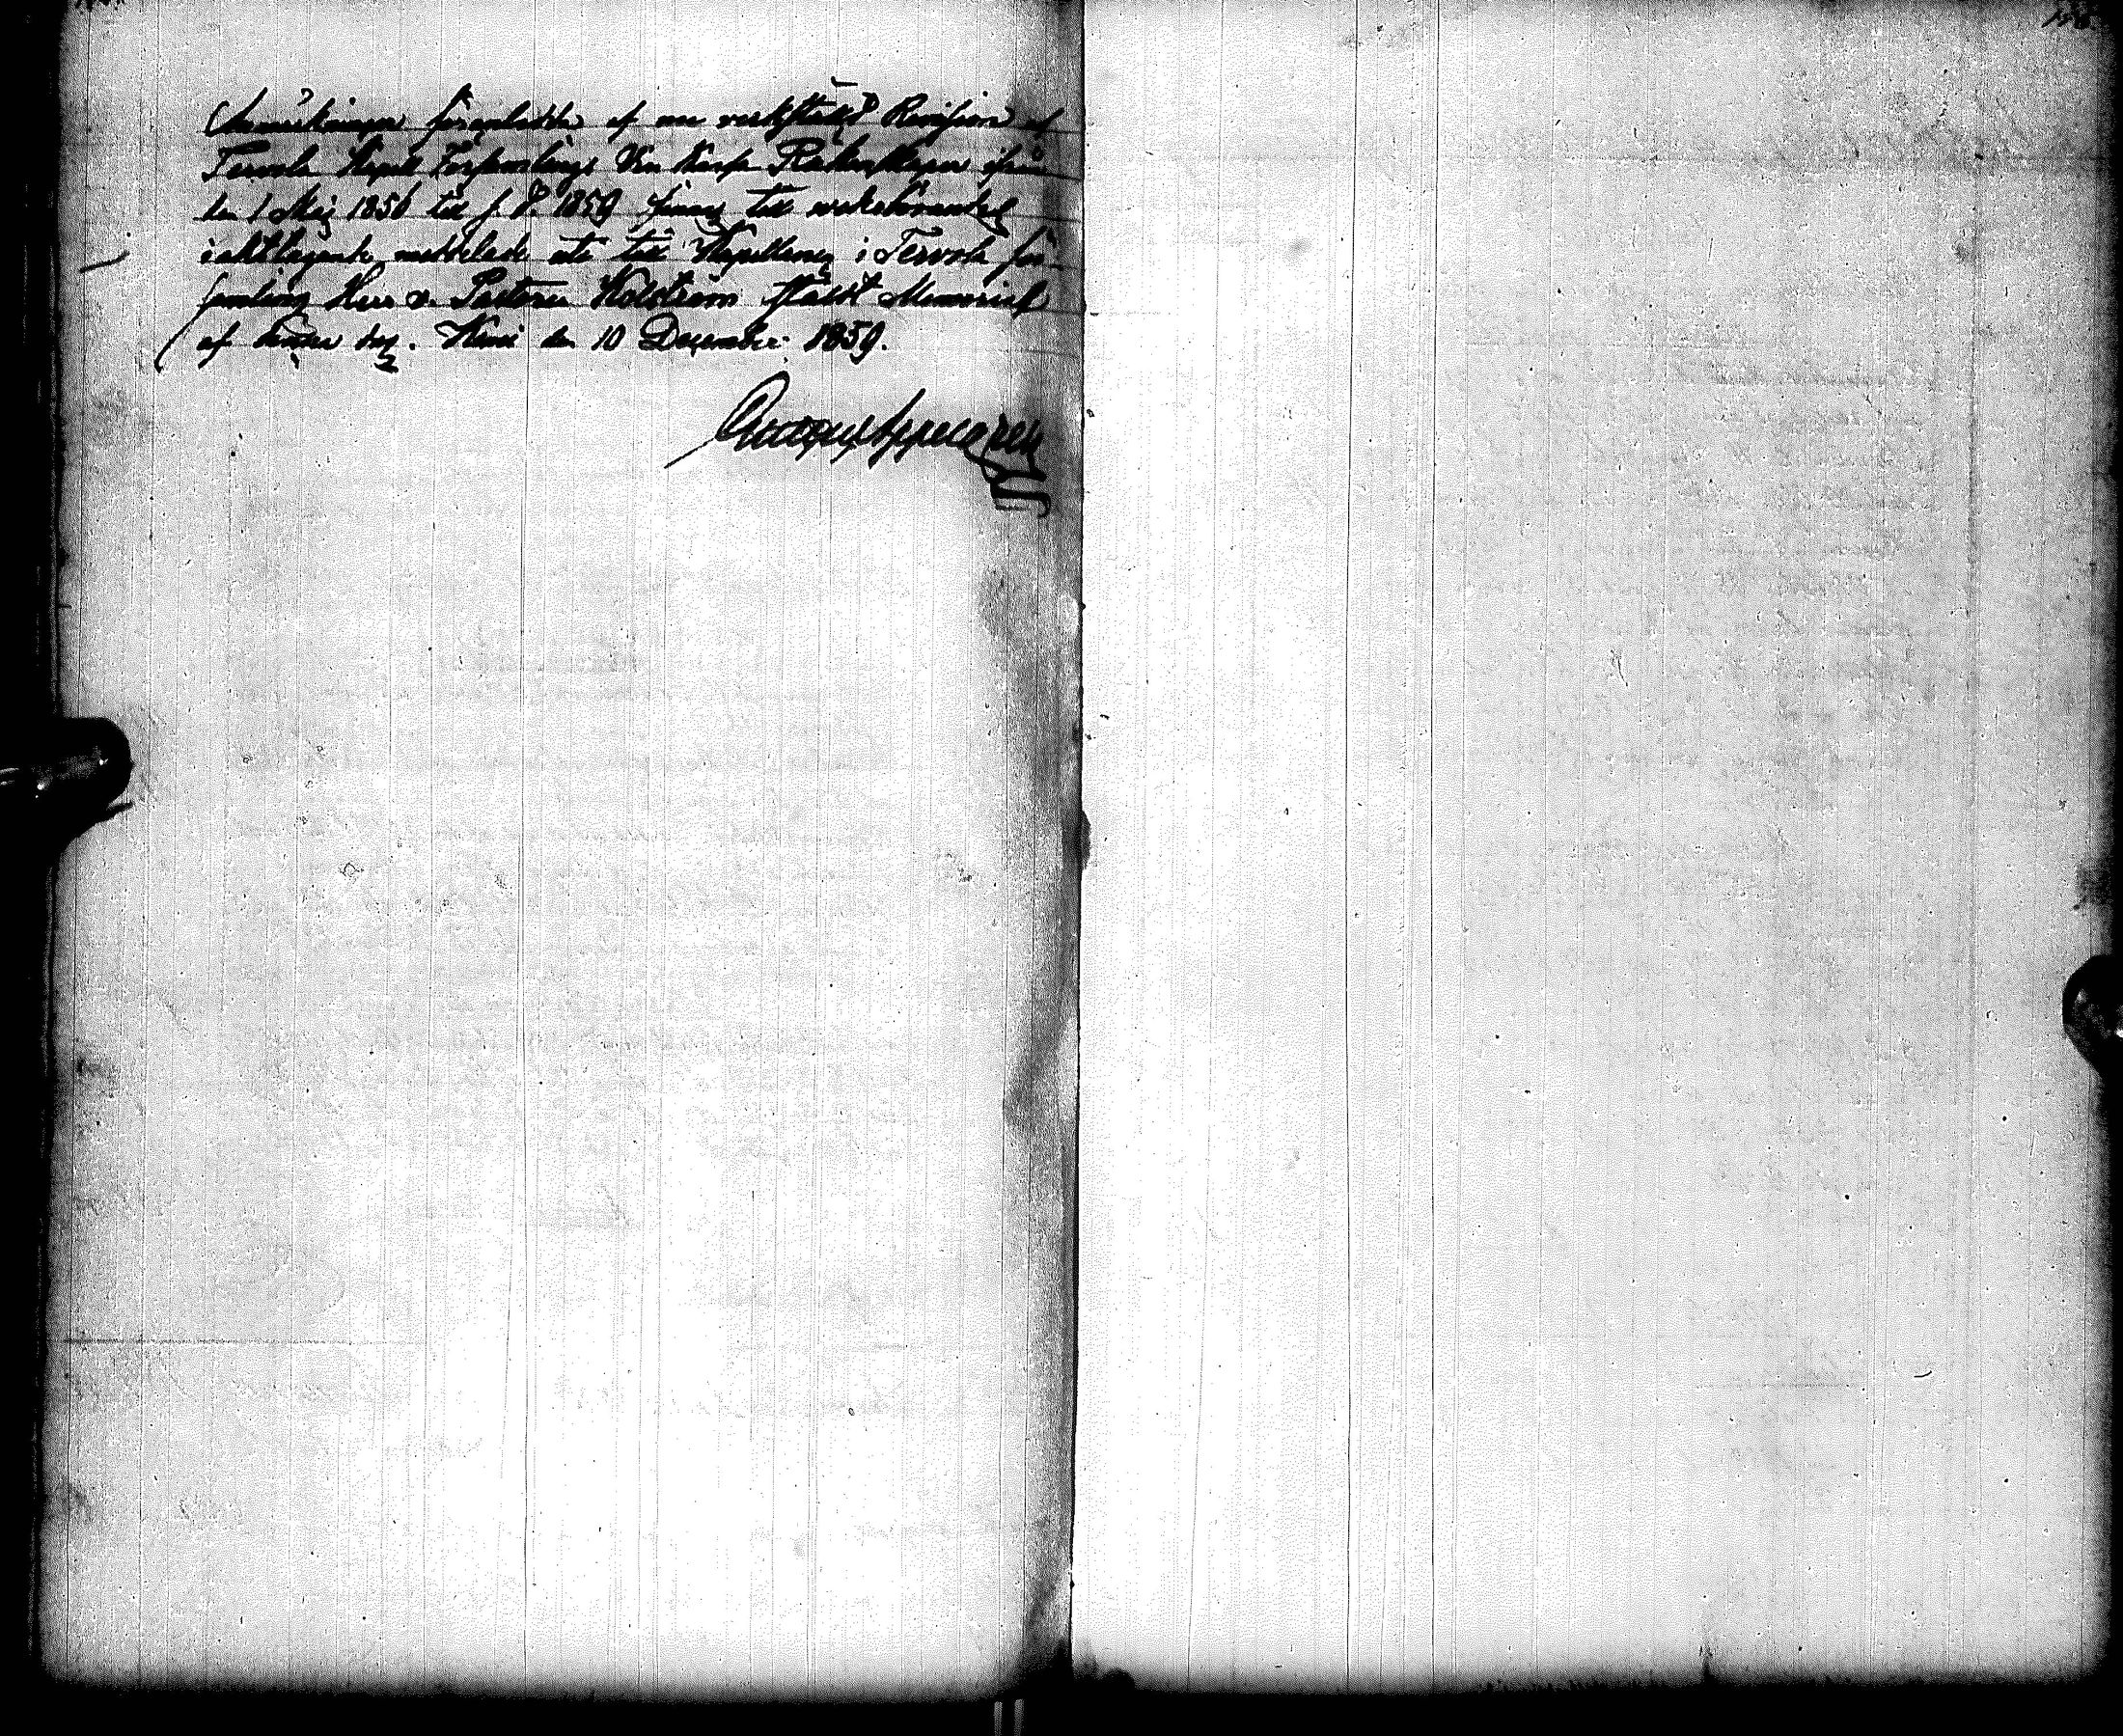 Anmärkningar föranledde af nu verkställd Revision af
Tervola Kapell Församlings Räkenskaper ifrån
den 1 Maj 1856 till s. d. 1859 finnas till vederbörandes
iakttagande meddelade uti till Kapellanen i Tervola för-
samling Herr v. Pastorn Holmström ställdt Memorial
af denna dag. Kemi den 10 December 1859.